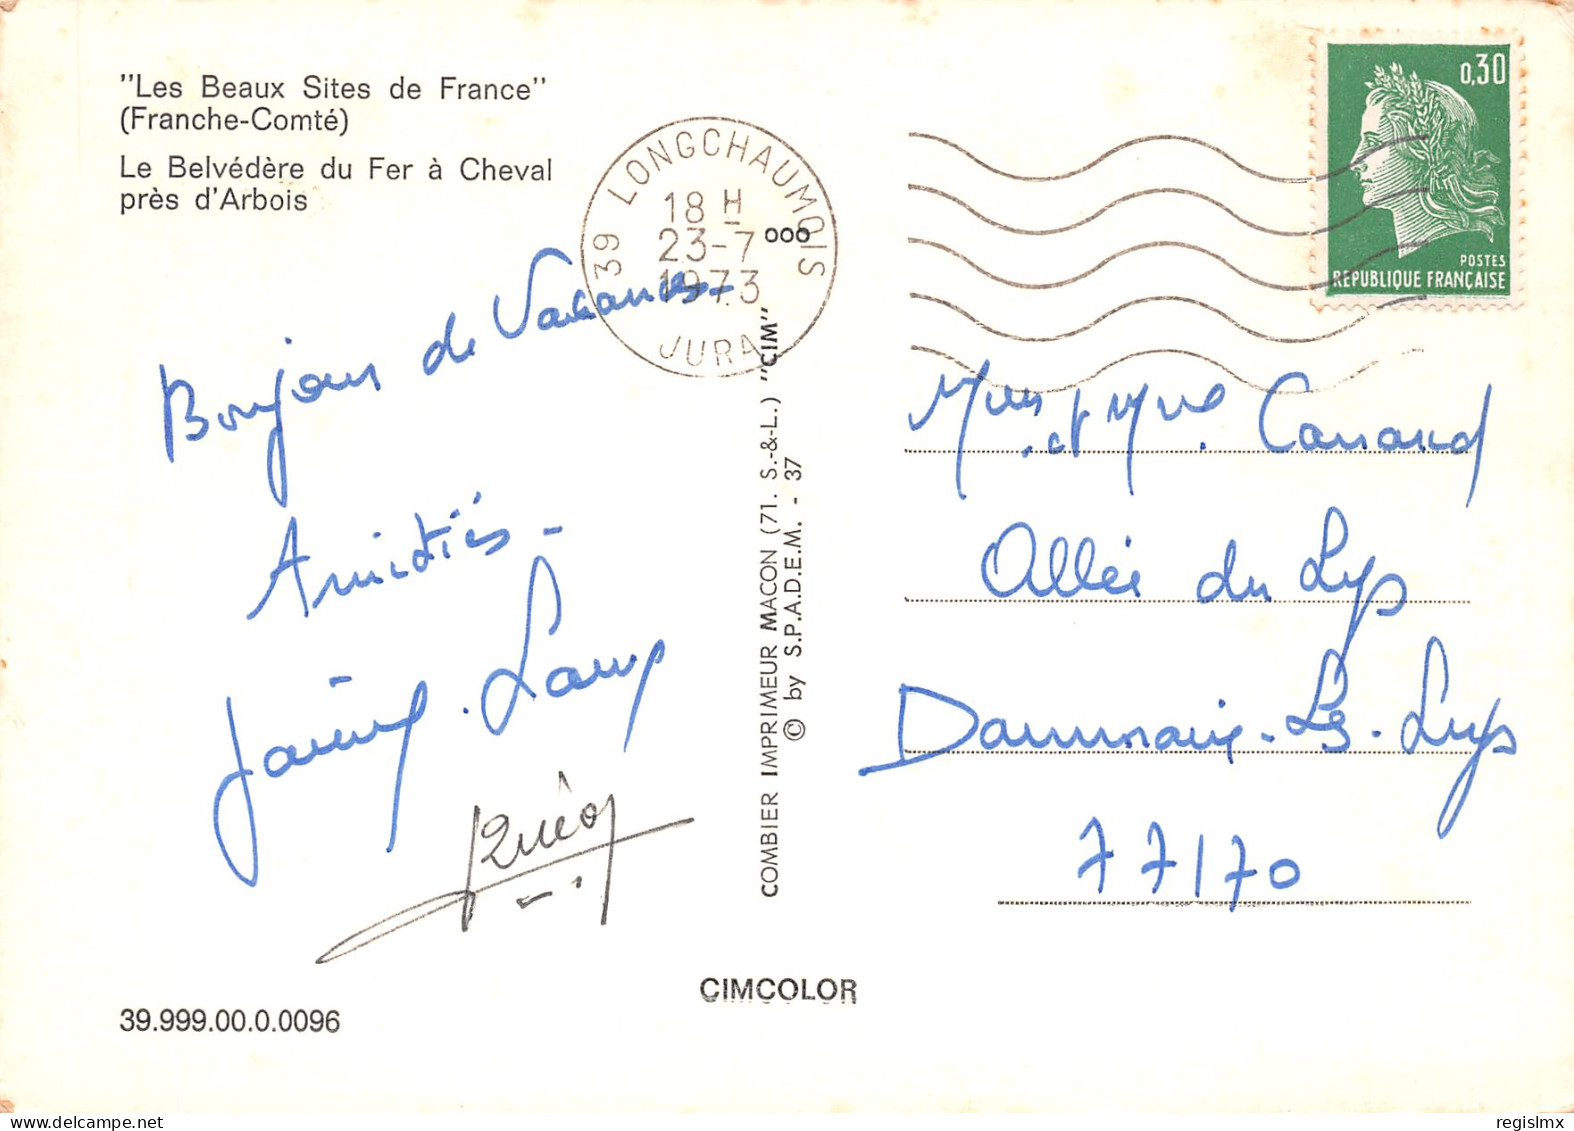 "Les Beaux Sites de France"
(Franche-Comté)
Le Belvédère du Fer à Cheval
près d'Arbois
39 LONGCHAUMOIS
18 H
23-7
1973
JURA
ooo
0,30
POSTES
REPUBLIQUE FRANÇAISE
Bonjour de Vacances
Amitiés -
COMBIER IMPRIMEUR MACON (71. S.-&-L.) "CIM"
© by S.P.A.D.E.M. - 37
et Mme
Allée du Lys
Dammarie-Les-Lys
77170
CIMCOLOR
39.999.00.0.0096
regislmx